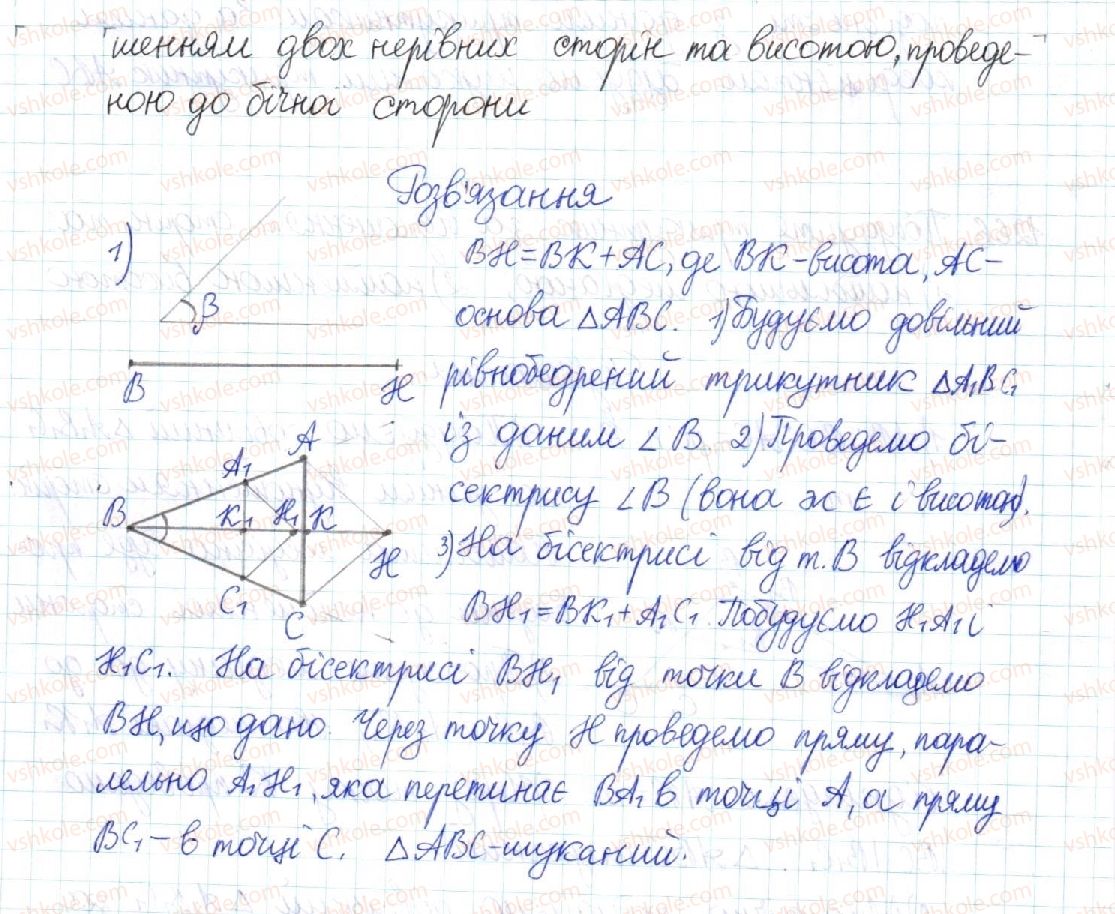 шенням двох нерівних сторін та висотою, проведе-
ною до бічної сторони
Розв'язання
1)
β
B H
BH=BK+AC, де BK-висота, AC-
основа △ABC. 1) Будуємо довільний
рівнобедрений трикутник △A₁BC₁
із даним ∠B. 2) Проведемо бі-
сектрису ∠B (вона ж є і висотою).
3) На бісектрисі від т. B відкладемо
BH₁=BK₁+A₁C₁. Побудуємо H₁A₁ і
A
A₁
B K₁ H₁ K H
C₁
C
H₁C₁. На бісектрисі BH₁ від точки B відкладемо
BH, що дано. Через точку H проведемо пряму, пара-
лельно A₁H₁, яка перетинає BA₁ в точці A, а пряму
BC₁ – в точці C. △ABC-шуканий.
vshkole.com